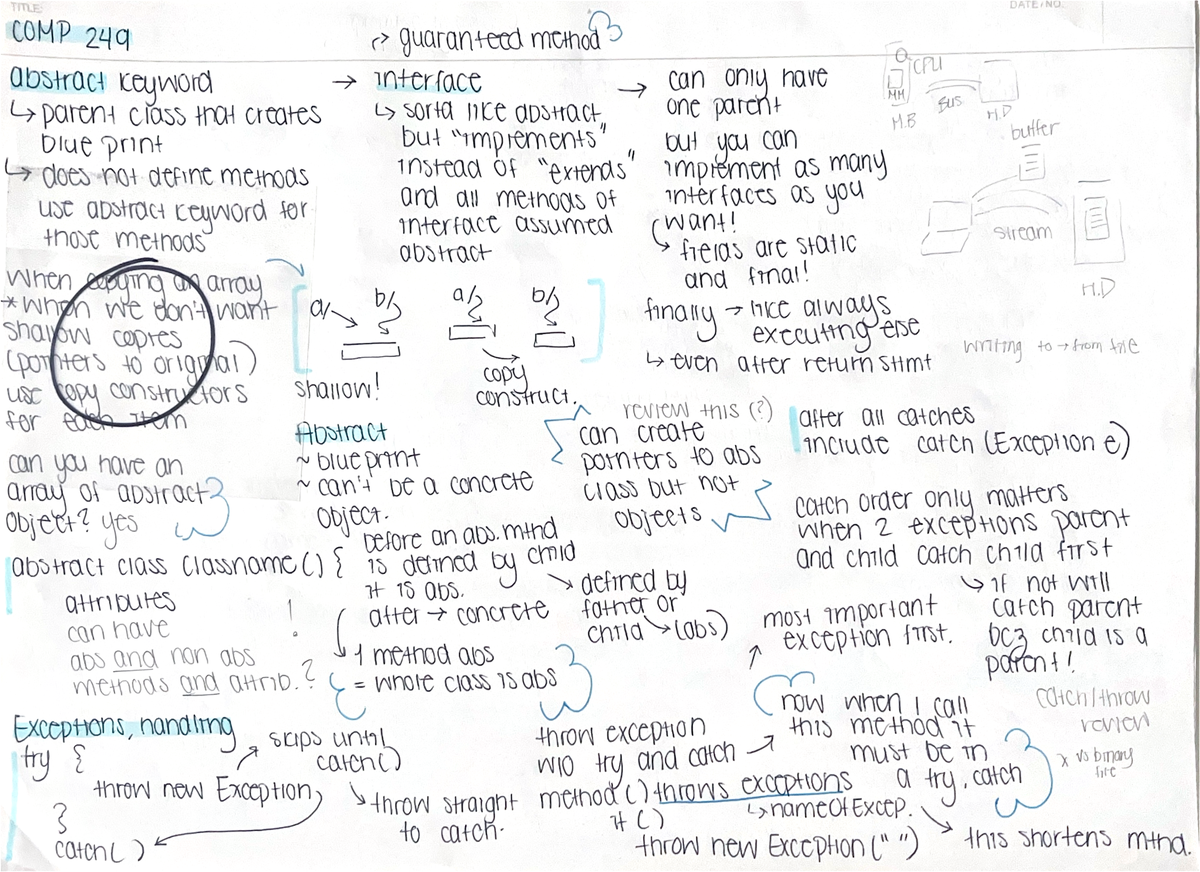 TITLE:
DATE/NO.
COMP 249
↱ guaranteed method
abstract keyword
↳ parent class that creates
blue print
↳ does not define methods
use abstract keyword for
those methods
→ interface
↳ sorta like abstract,
but "implements"
instead of "extends"
and all methods of
interface assumed
abstract
→ can only have
one parent
but you can
implement as many
interfaces as you
want!
↳ fields are static
and final!
CPU
MM
M.B
BUS
H.D
buffer
stream
H.D
writing to → from file
finally → like always
executing else
↳ even after return stmt
When copying an array
*when we don't want
shallow copies
(pointers to original)
use copy constructors
for each item
a/s
b/s
a/s
b/s
shallow!
copy
construct.
can you have an
array of abstract
object? yes
Abstract
~ blueprint
~ can't be a concrete
object.
review this (?)
can create
pointers to abs
class but not
objects
after all catches
include catch (Exception e)
catch order only matters
when 2 exceptions parent
and child catch child first
↳ if not will
catch parent
bcz child is a
parent!
abstract class classname () {
attributes
can have
abs and non abs
methods and attrib. ?
!
before an abs. mthd
is defined by child
it is abs.
after → concrete
↘ defined by
father or
child ↘ (abs)
↳ 1 method abs
= whole class is abs
most important
exception first.
Exceptions, handling
try {
throw new Exception
}
catch( )
↗ skips until
catch()
↘ throw straight
to catch.
throw exception
w/o try and catch →
method () throws exceptions
↳ nameOfExcep.
if ()
throw new Exception (" ")
now when I call
this method it
must be in
a try, catch
↘ this shortens mthd.
catch/throw
review
x vs binary
file